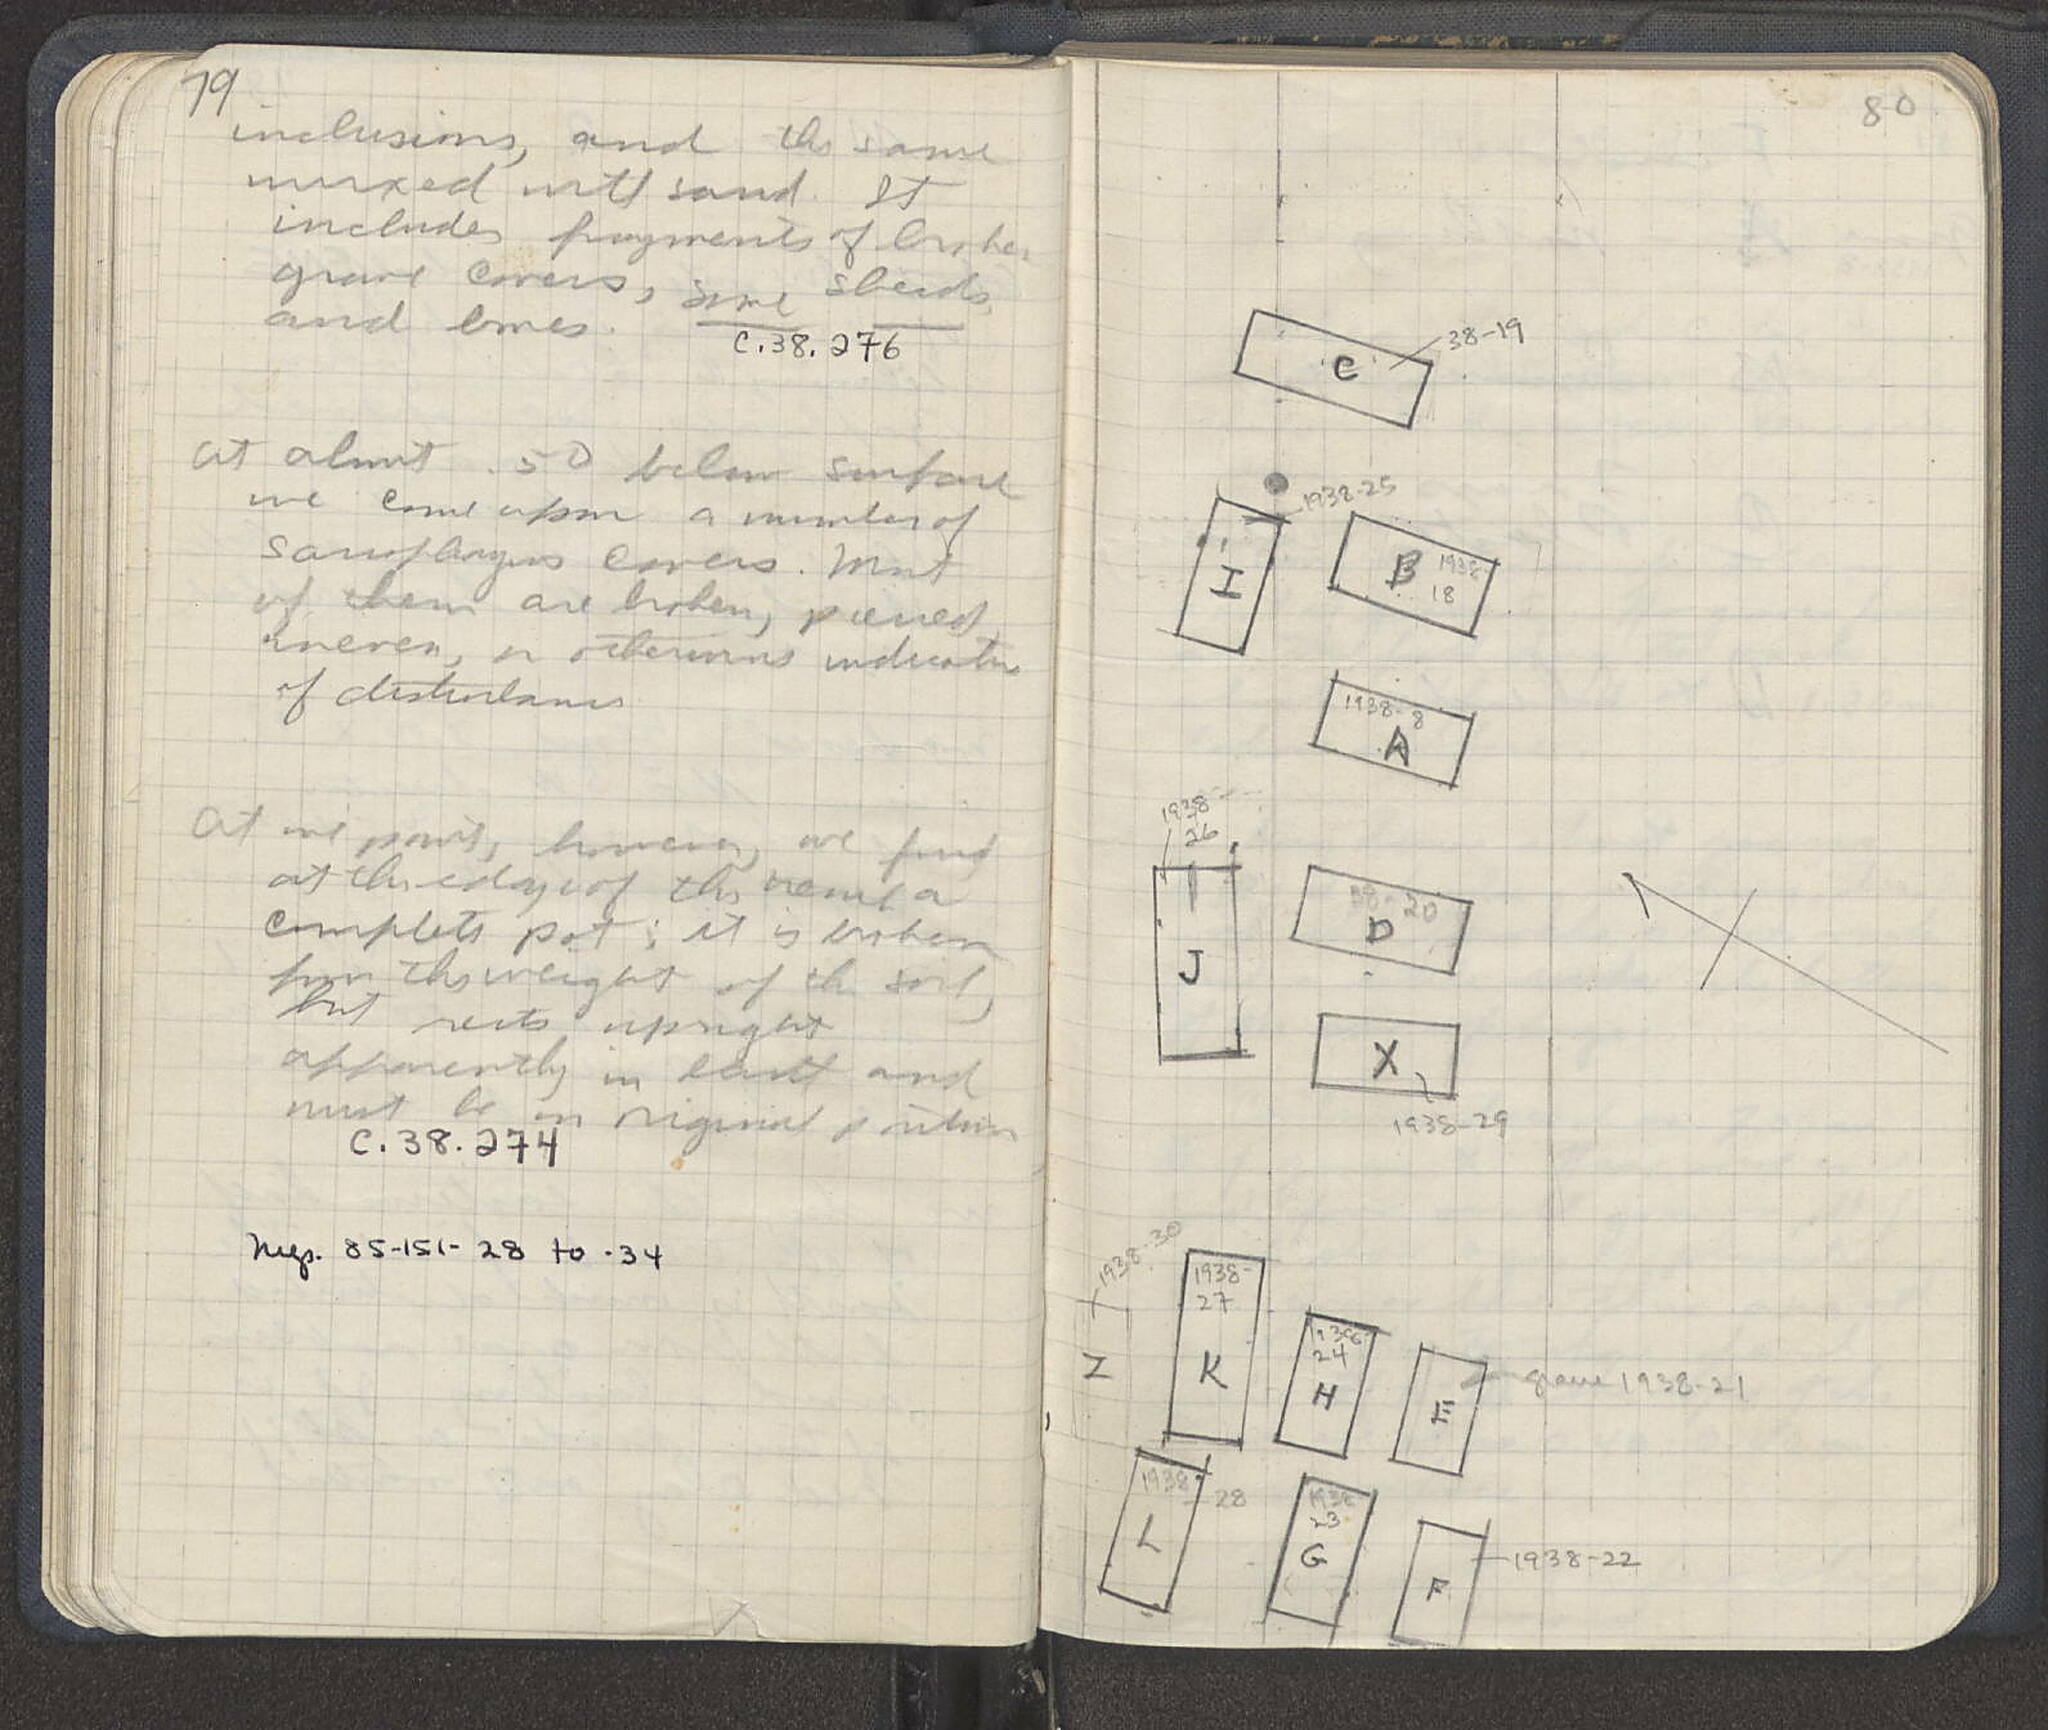 79
inclusions, and the same
mixed with sand. It
includes fragments of broken
grave covers, some sherds,
and bones.
C.38.276
At about .50 below surface
we come upon a number of
sarcophagus covers. Most
of them are broken, pierced
uneven, or otherwise indicative
of disturbance
At one point, however, we find
at the edge of the trench a
complete pot; it is broken
from the weight of the soil,
but rests upright
apparently in earth and
must be in original position
C.38.274
Negs. 85-151-28 to -34
80
38-19
C
1938-25
I
B 1938-
18
1938-8
A
1938-
26
38-20
D
J
X
1938-29
1938-30
1938-
27
Z
K
1938-
24
H
E
grave 1938-21
1938-28
L
1938-
23
G
F
1938-22